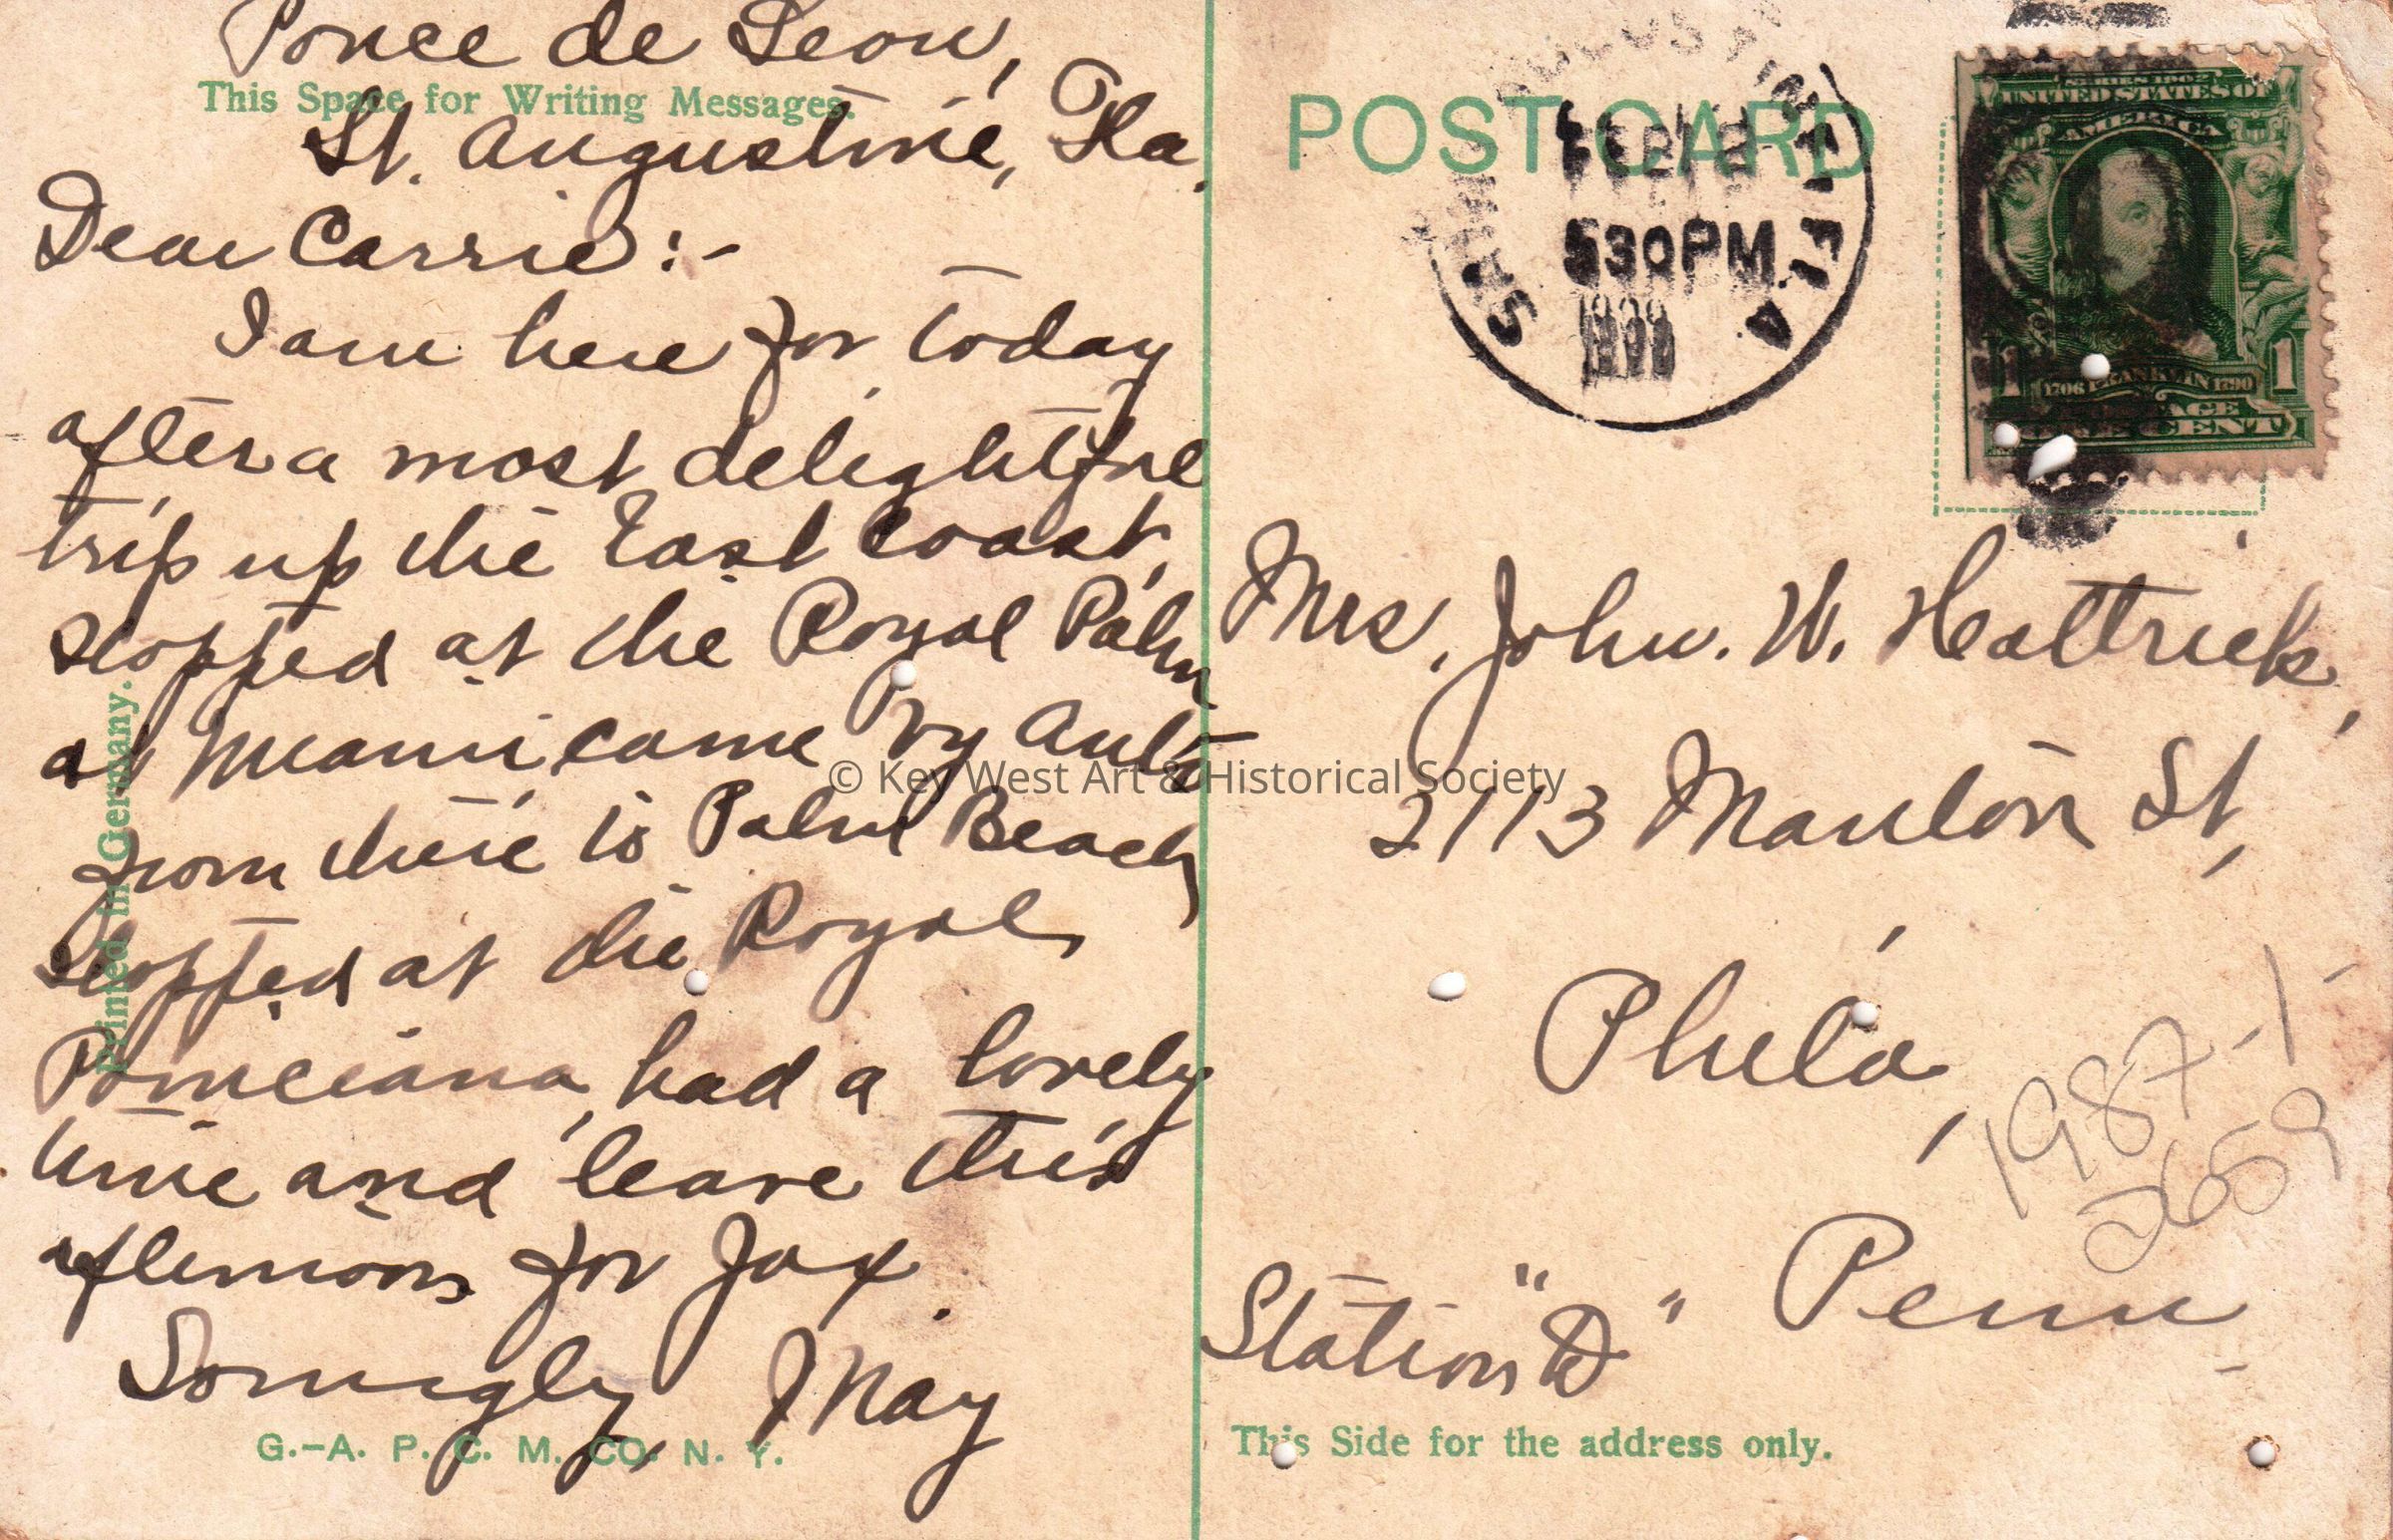 Ponce de Leon,
This Space for Writing Messages.
St. Augustine, Fla.
Dear Carrie:-
I am here for today
after a most delightful
trip up the East Coast,
stopped at the Royal Palm
at Miami, came by Auto
from there to Palm Beach
stopped at the Royal
Poinciana, had a lovely
time and leave this
afternoon for Jax.
Lovingly, May
G.-A. P. C. M. CO. N. Y.
Printed in Germany.
POST CARD
SAINT AUGUSTINE FLA
FEB
530PM
SERIES 1902
UNITED STATES OF
AMERICA
1706 FRANKLIN 1790
1 1
POSTAGE
ONE CENT
Mrs. John. W. Hattrick,
2113 Manton St,
Phila,
Penn
Station "D"
1987-1-
2659
This Side for the address only.
© Key West Art & Historical Society